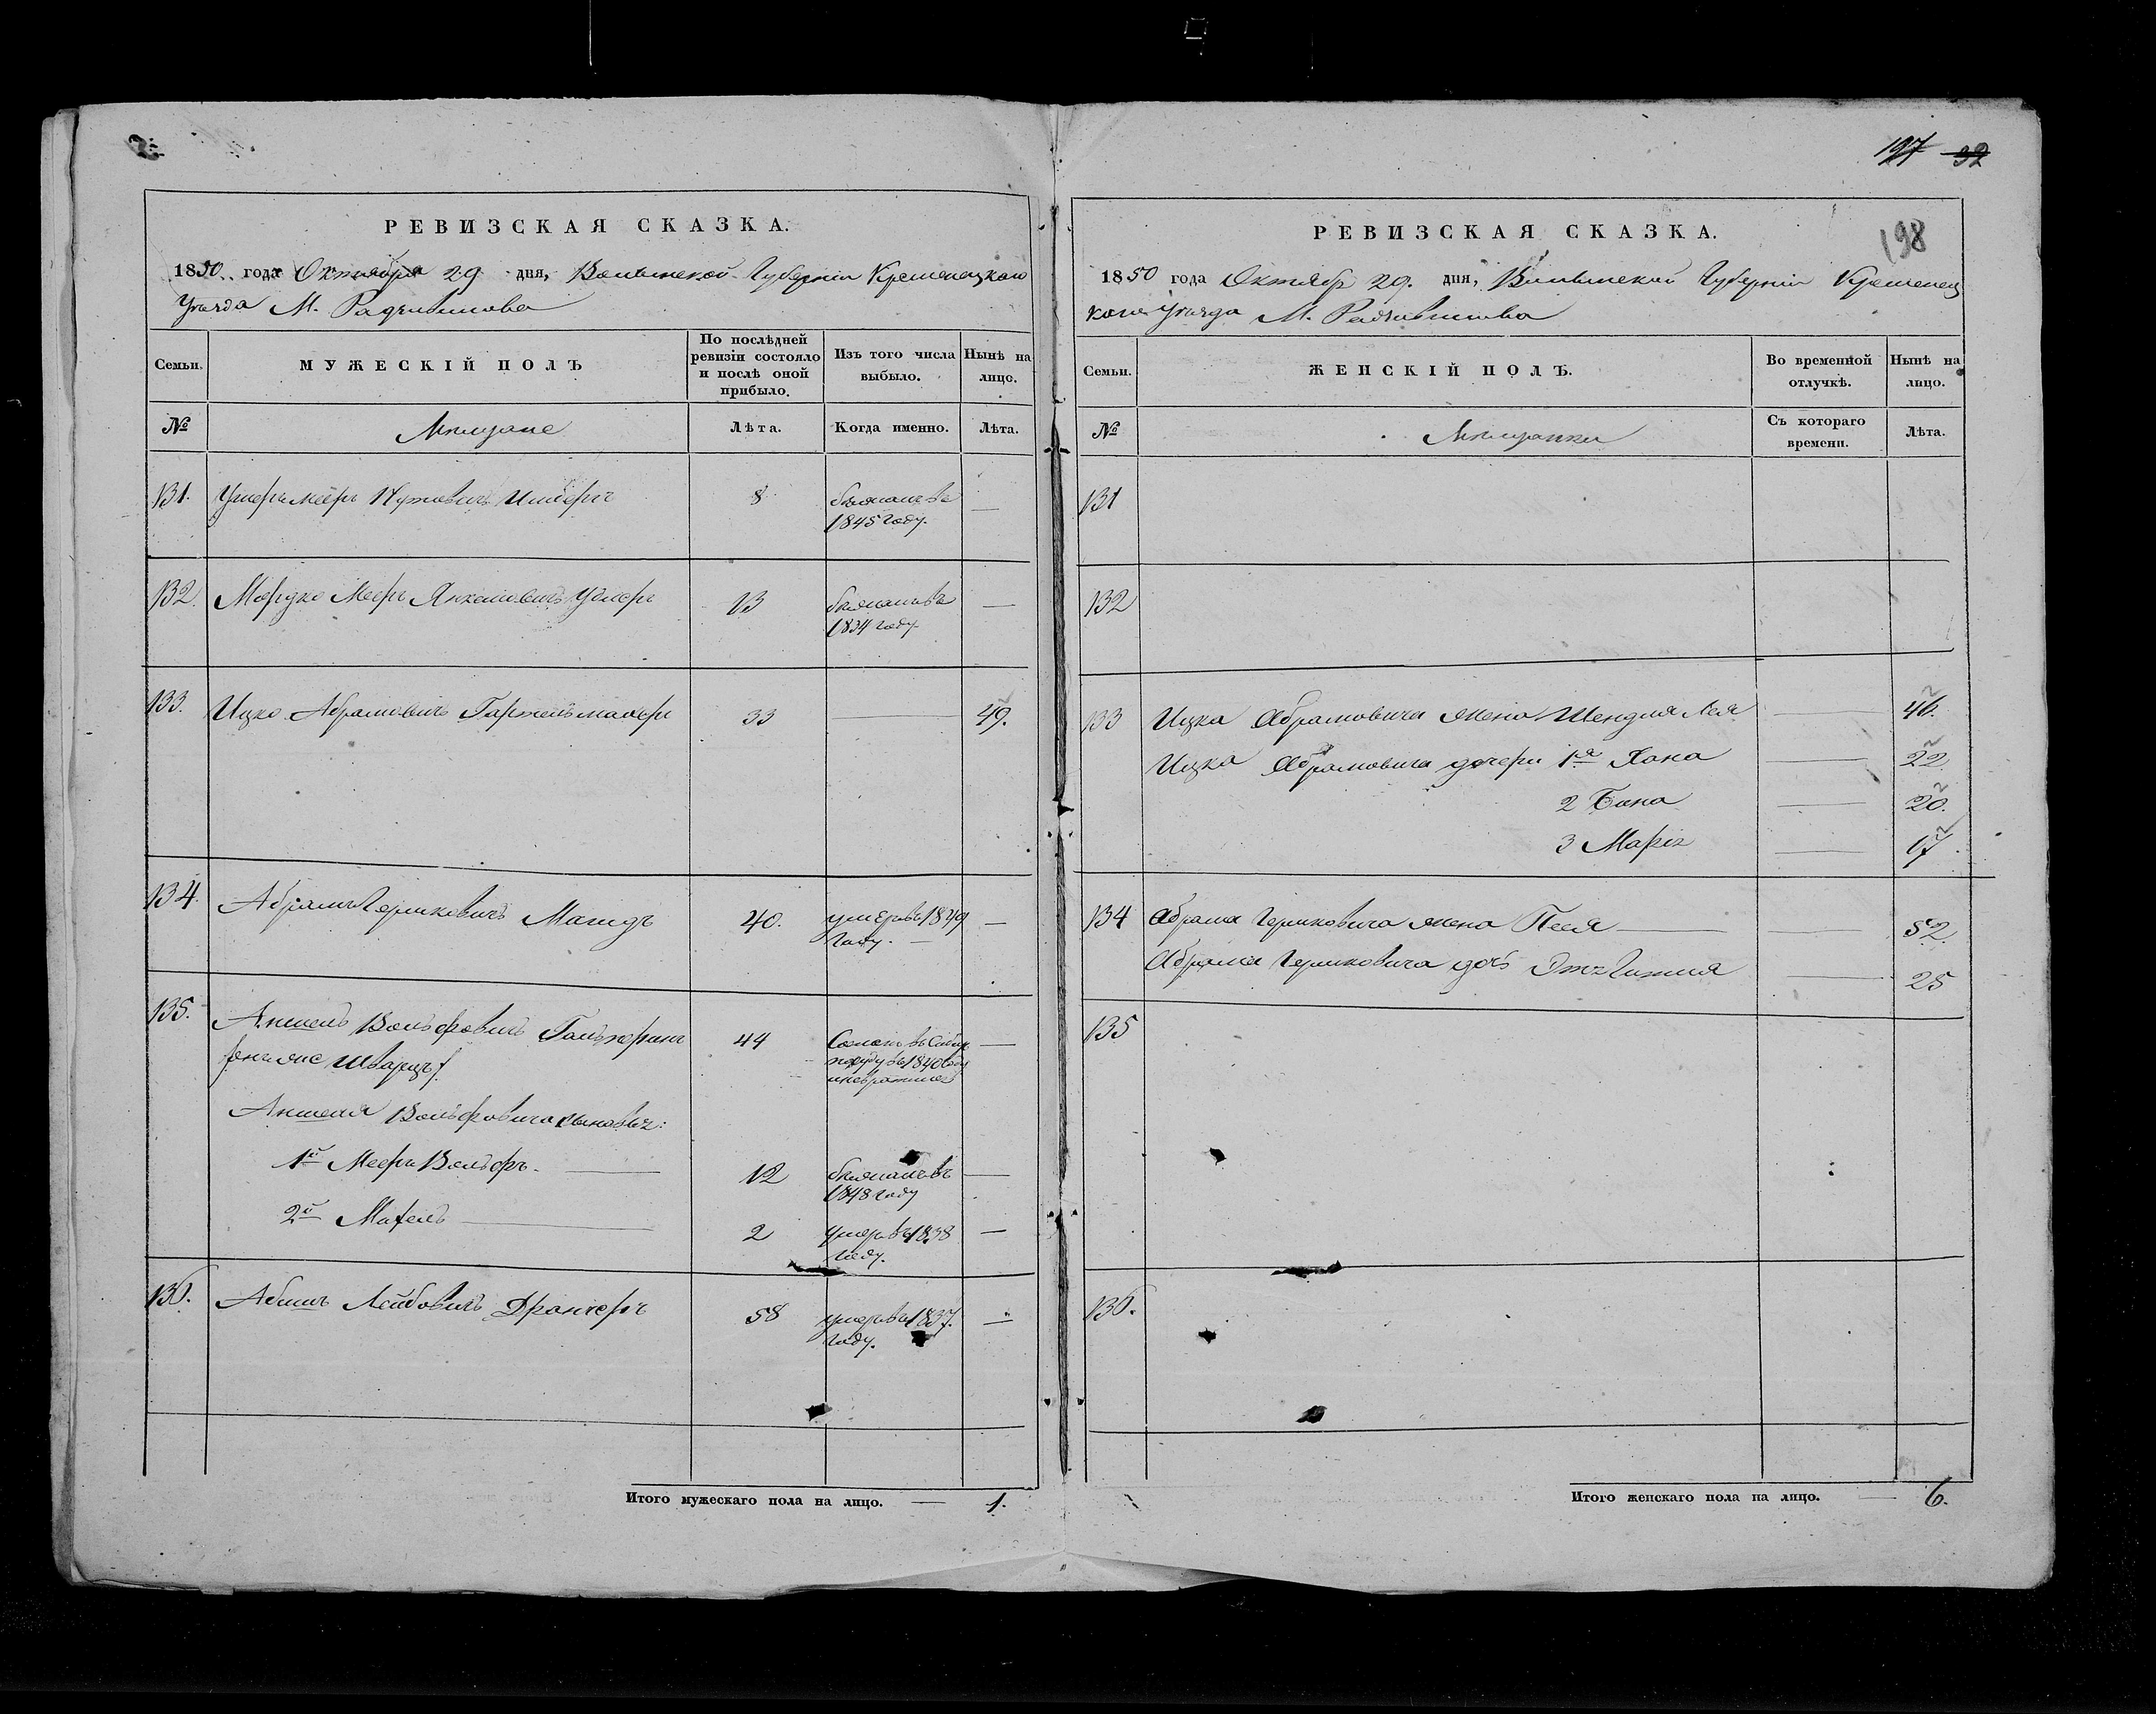 197 32
198
РЕВИЗСКАЯ СКАЗКА.
1850 года Октября 29 дня, Волынской Губерніи Кременецкаго
Уѣзда М. Радзивилова
Семьи.
МУЖЕСКІЙ ПОЛЪ
По послѣдней ревизіи состояло и послѣ оной прибыло.
Изъ того числа выбыло.
Нынѣ на лицо.
№
Мѣщане
Лѣта.
Когда именно.
Лѣта.
131. 8 1845 году. —
132. Мордко Мееръ Янкелевичъ 13 1834 году —
133. Ицко Абрамовичъ 33 — 49.
134. Абрамъ Гершковичъ Магидъ 40. умеръ въ 1849 —
году. —
135. Аншель Вольфовичъ Гальперинъ 44 Сосланъ въ —
онъ же Шварцъ въ 1840 году
Аншеля Вольфовича сыновья:
1й Мееръ Вольфъ — 12 —
1848 году
2й — 2 умеръ въ 1838 —
году.
136. Лейбовичъ 58 умеръ въ 1837 —
году.
Итого мужескаго пола на лицо. — 1.
РЕВИЗСКАЯ СКАЗКА.
1850 года Октябр 29. дня, Волынской Губерніи Кременец
каго Уѣзда М. Радзивилова
Семьи.
ЖЕНСКІЙ ПОЛЪ.
Во временной отлучкѣ.
Нынѣ на лицо.
№
Мѣщанки
Съ котораго времени.
Лѣта.
131
132
133 Ицка Абрамовича жена Шендля Лея — 46.
Ицка Абрамовича дочери 1я Хана — 22
2 — 20.
3 — 17
134 Абрама Гершковича жена Песя — 52.
Абрама Гершковича дочь — 25
135
136.
Итого женскаго пола на лицо. — 6.